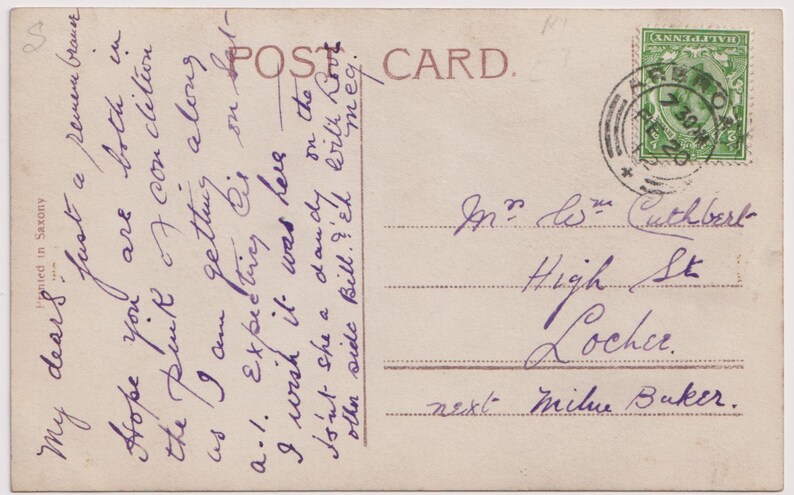 POST CARD.
HALFPENNY
7 30 PM
FE 20
12
Printed in Saxony
My dears just a remembrance
Hope you are both in
the pink of condition
as I am getting along
a.1. Expecting Cis on Sat-
I wish it was here
Isn't she a dandy on the
other side Bill. & Eh with Love
Meg.
Mrs Wm Cuthbert
High St
Lochee.
next Milne Baker.